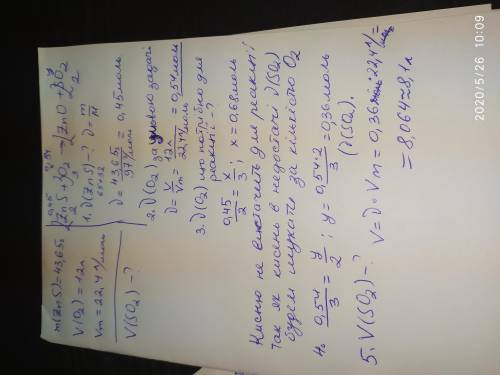 m(ZnS)=43,65г
V(O2)=12л
Vm=22,4л/моль
V(SO2)-?
0,45 0,54
2ZnS+3O2→2ZnO+2SO2
2 3 2
1. ν(ZnS)-? ν=m/M
65+32
ν=43,65г/97г/моль=0,45моль
2. ν(O2) за умовою задачі
ν=V/Vm=12л/22,4л/моль=0,54моль
3. ν(O2) що потрібно для
реакції-?
0,45/2=x/3; x=0,68моль
Кисню не вистачить для реакції
Так як кисень в недостачі ν(SO2)
будем шукати за кількістю O2
4. 0,54/3=y/2; y=0,54·2/3=0,36моль
(ν(SO2).
5. V(SO2)-? V=ν·Vm=0,36моль·22,4л/моль=
=8,064≈8,1л
2020/5/26 10:09